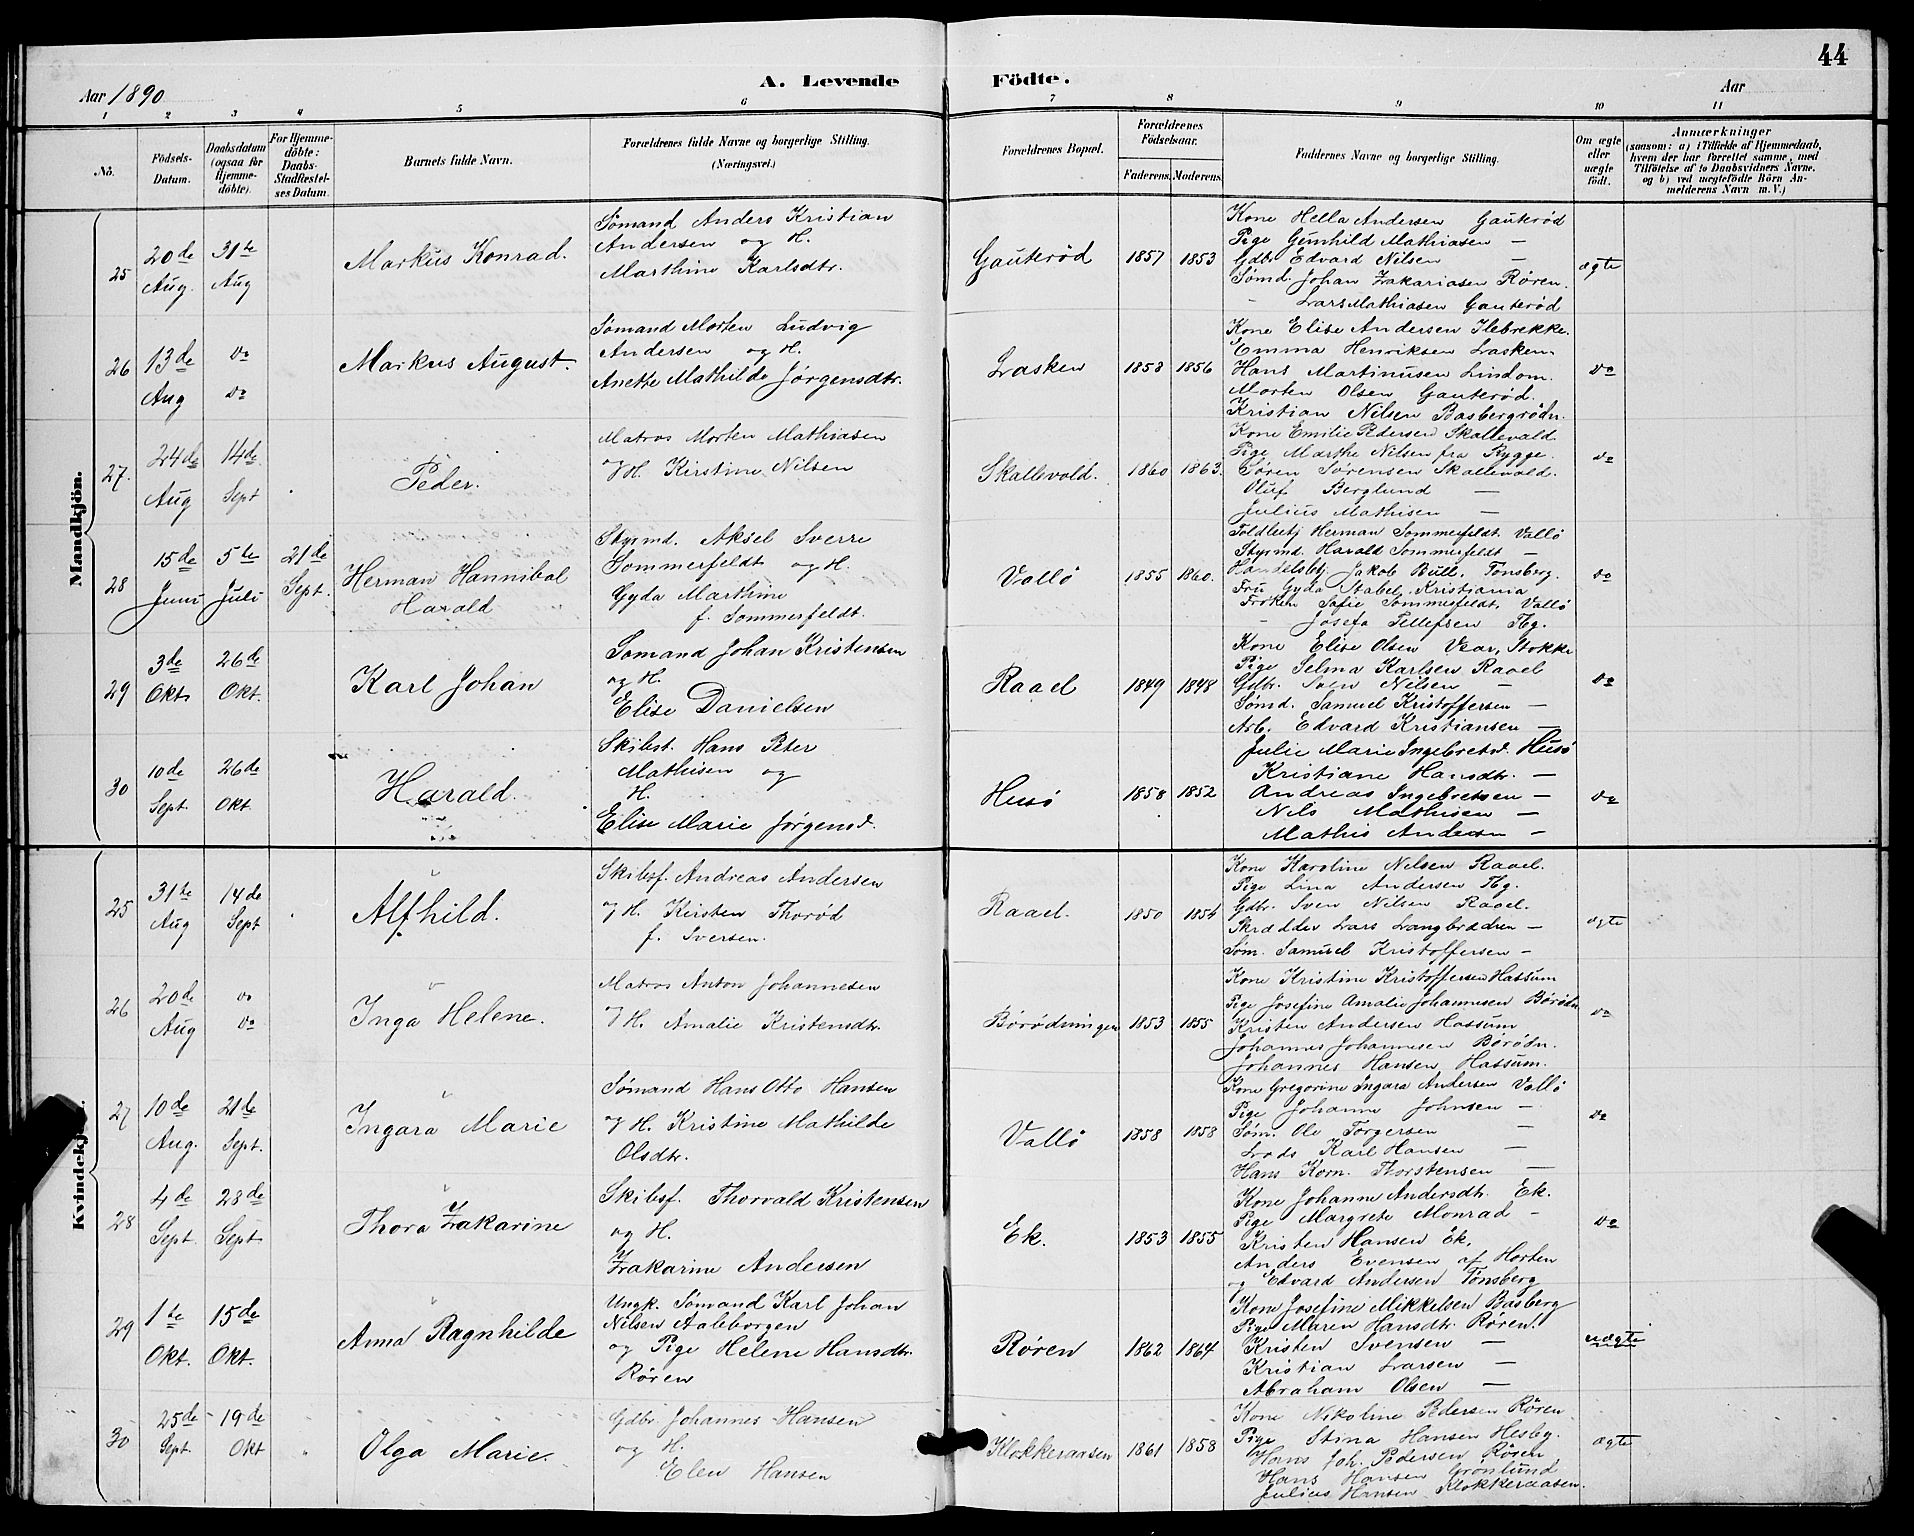 44
Aar 1890
A. Levende Födte.
Aar
1 2 3 4 5 6 7 8 9 10 11
No.
Födsels-Datum.
Daabsdatum (ogsaa for Hjemmedöbte).
For Hjemmedöbte: Daabs-Stadfæstelses Datum.
Barnets fulde Navn.
Forældrenes fulde Navne og borgerlige Stilling. (Næringsvei.)
Forældrenes Bopæl.
Forældrenes Födselsaar.
Faderens. Moderens.
Faddernes Navne og borgerlig Stilling.
Om ægte eller uægte födt.
Anmærkninger
(saasom: a) i Tilfælde af Hjemmedaab, hvem der har forrettet samme, med Tilföielse af to Daabsvidners Navne, og b) ved uægtefödte Börn Anmelderens Navn m. V.)
Mandkjön.
25 20de Aug. 31te Aug Markus Konrad.
Sømand Anders Kristian
Andersen og H.
Marthine Karlsdtr.
Gauterød 1857 1853
Kone Hella Andersen Gauterød
Pige Gunhild Mathiasen —
Gdbr Edvard Nilsen —
Sømd. Johan Zakariasen Røren.
- Lars Mathiasen Gauterød
ægte
26 13de Aug do do Markus August.
Sømand Morten Ludvig
Andersen og H.
Anette Mathilde Jørgensdtr.
Lasken 1858 1856
Kone Elise Andersen Ilebrekke.
Emma Henriksen Lasken.
Hans Martinusen Lindom.
Morten Olsen Gauterød.
Kristian Nilsen Basbergrödn.
do
27. 24de Aug 14de Sept Peder.
Matros Morten Mathiasen
og H. Kirstine Nilsen
Skallevold. 1860 1863.
Kone Emilie Pedersen Skallevald.
Pige Marthe Nilsen fra Rygge.
Søren Sørensen Skallevald.
Oluf Berglund —
Julius Mathisen —
do
28 15de Juni 5te Juli 21de Sept. Herman Hannibal
Harald
Styrmd. Aksel Sverre
Sommerfeldt og H.
Gyda Marthine
f. Sommerfeldt.
Vallö 1855 1860.
Toldbetj Herman Sommerfeldt. Vallö
Styrmd. Harald Sommerfeldt —
Handelsbtj Jakob Bull. Tønsberg.
Fru Gyda Stabel. Kristiania
Frøken Sofie Sommerfeldt. Vallö
- Josefa Tellefsen Tbg.
do
29 3de Okt 26de Okt. Karl Johan
Sømand Johan Kristensen
og H.
Elise Danielsen
Raael 1849 1848
Kone Elise Olsen Vear, Stokke
Pige Selma Karlsen Raael
Gdbr. Sven Nilsen —
Sømd. Samuel Kristoffersen —
Arb. Edvard Kristiansen —
do
30 10de Sept. 26de Okt. Harald.
Skibst. Hans Peter
Mathisen og
H.
Elise Marie Jørgensd.
Husö 1858 1852
Julie Marie Ingebretsd. Husö
Kristiane Hansdtr. —
Andreas Ingebretsen —
Nils Mathisen —
Mathis Andersen —
do
Kvindekj
25 31te Aug 14de Sept Alfhild.
Skibsf. Andreas Andersen
og H. Kirsten Thorød
f. Iversen.
Raael. 1850 1854
Kone Karoline Nilsen Raael.
Pige Lina Andersen Tbg.
Gdbr. Sven Nilsen Raael.
Skrædder Lars Langbrædren —
Søm. Samuel Kristoffersen —
ægte
26 20de Aug do do Inga Helene.
Matros Anton Johannesen
og H. Amalie Kristensdtr.
Börödningen 1853 1855
Kone Kristine Kristoffersen Hassum
Pige Josefine Amalie Johannesen Börödn
Kristen Andersen Hassum
Johannes Johannesen Börödn.
Johannes Hansen Hassum.
do
27 10de Aug. 21de Sept. Ingara Marie
Sømand Hans Otto Hansen
og H. Kristine Mathilde
Olsdtr.
Vallö 1858 1858
Kone Gregorine Ingara Andersen Vallö
Pige Johanne Johnsen —
Søm. Ole Torgersen —
Lods Karl Hansen —
Hans Korn. Thorstensen —
do
28 4de Sept. 28de Sept Thora Zakarine
Skibsf. Thorvald Kristensen
og H.
Zakarine Andersen
Ek. 1853 1855
Kone Johanne Andersdtr. Ek.
Pige Margrete Monrad -
Kristen Hansen Ek,
Anders Evensen af Horten
og Edvard Andersen Tønsberg
do
29 1te Okt. 15de Okt. Anna Ragnhilde
Ungk. Sømand Karl Johan
Nilsen Aaleborgen
og Pige Helene Hansdtr.
Røren
Røren 1862 1864
Kone Josefine Mikkelsen Basberg
Pige Maren Hansdtr. Røren.
Kristen Svensen —
Kristian Larsen —
Abraham Olsen —
uægte
30 25de Sept. 19de Okt Olga Marie.
Gdbr. Johannes Hansen
og H.
Elen Hansen
Klokkeraasen 1861 1858
Kone Nikoline Pedersen Røren
Pige Stina Hansen Hesby.
Hans Joh. Pedersen Røren
Hans Hansen Grönlund
Julius Hansen Klokkeraasen.
ægte